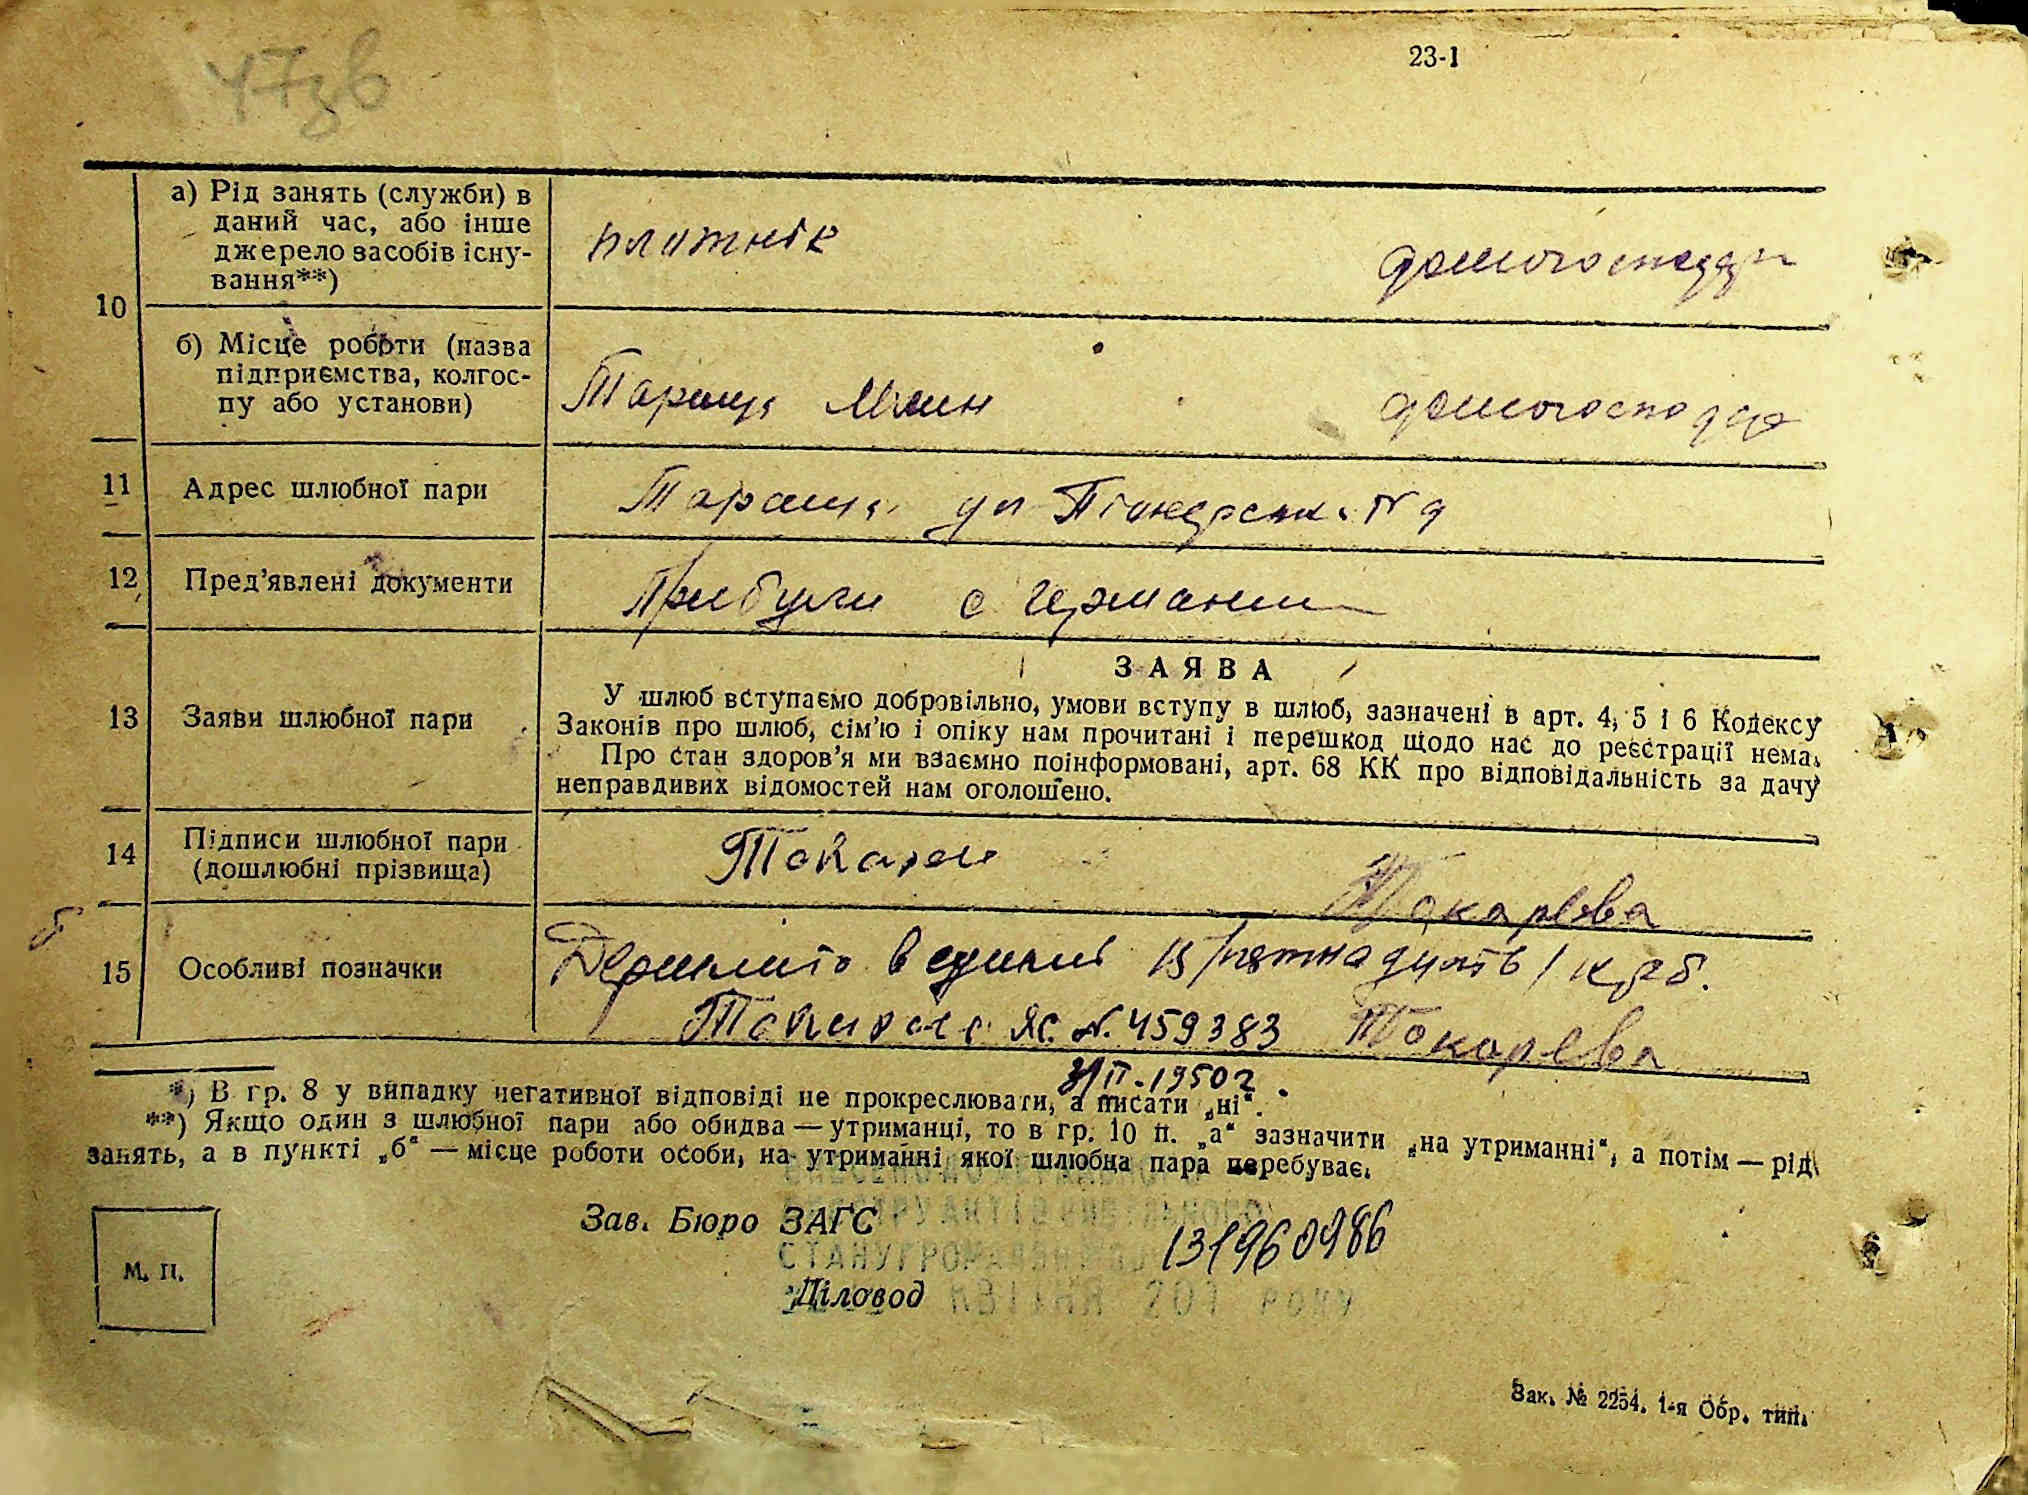 47зв
23-1
10
а) Рід занять (служби) в
даний час, або інше
джерело засобів існу-
вання**)
плотнік
домогосподар
б) Місце роботи (назва
підприємства, колгос-
пу або установи)
Тараща Млин
домогосподар
11
Адрес шлюбної пари
Тараща ул Піонерська № 9
12
Пред’явлені документи
Прибули с германии
13
Заяви шлюбної пари
ЗАЯВА
У шлюб вступаємо добровільно, умови вступу в шлюб, зазначені в арт. 4, 5 і 6 Кодексу
Законів про шлюб, сім’ю і опіку нам прочитані і перешкод щодо нас до реєстрації нема.
Про стан здоров’я ми взаємно поінформовані, арт. 68 КК про відповідальність за дачу
неправдивих відомостей нам оголошено.
14
Підписи шлюбної пари
(дошлюбні прізвища)
Токарев
Токарева
15
Особливі позначки
15 /пятнадцять/ крб.
ЯС № 459383 Токарева
3/II-1950г.
*) В гр. 8 у випадку негативної відповіді не прокреслювати, а писати „ні“.
**) Якщо один з шлюбної пари або обидва — утриманці, то в гр. 10 п. „а“ зазначити „на утриманні“, а потім — рід
занять, а в пункті „б“ — місце роботи особи, на утриманні якої шлюбна пара перебуває.
РЕЄСТРУ АКТІВ ЦИВІЛЬНОГО
Зав. Бюро ЗАГС
131960986
СТАНУ ГРОМАДЯН
М. П.
Діловод
КВІТНЯ 201 РОКУ
Зак. № 2254. 1-я Обр. тип.